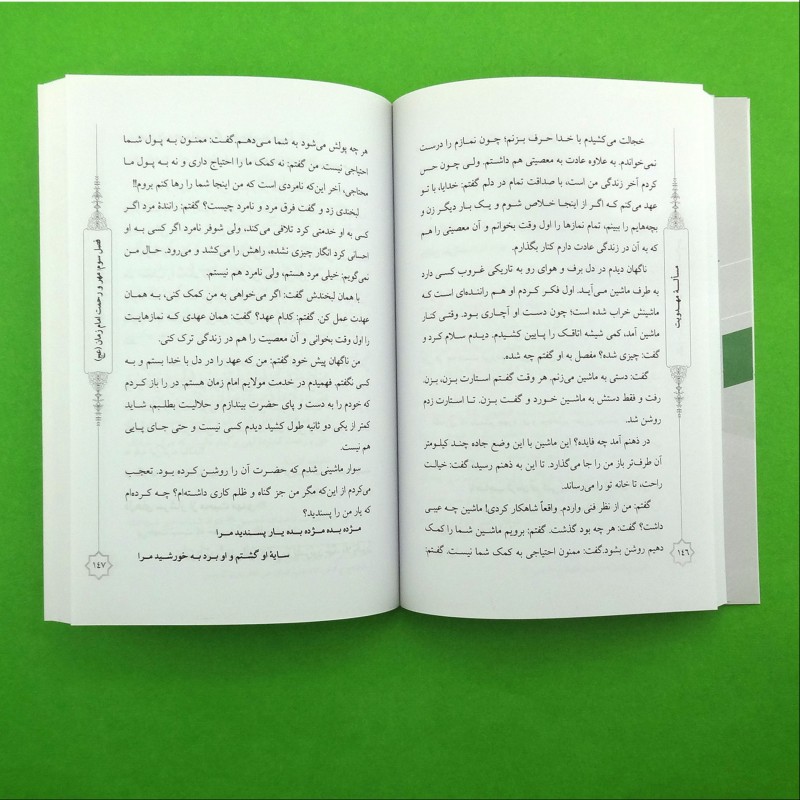 خجالت می‌کشیدم با خدا حرف بزنم؛ چون نمازم را درست
نمی‌خواندم. به علاوه عادت به معصیتی هم داشتم. ولی چون حس
کردم آخر زندگی من است، با صداقت تمام در دلم گفتم: خدایا، با تو
عهد می‌کنم که اگر از اینجا خلاص شوم و یک بار دیگر زن و
بچه‌هایم را ببینم، تمام نمازها را اول وقت بخوانم و آن معصیتی را هم
که به آن در زندگی عادت دارم کنار بگذارم.
ناگهان دیدم در دل برف و هوای رو به تاریکی غروب کسی دارد
به طرف ماشین می‌آید. اول فکر کردم او هم راننده‌ای است که
ماشینش خراب شده است؛ چون دست او آچاری بود. وقتی کنار
ماشین آمد، کمی شیشه اتاقک را پایین کشیدم. دیدم سلام کرد و
گفت: چیزی شده؟ مفصل به او گفتم چه شده.
گفت: دستی به ماشین می‌زنم. هر وقت گفتم استارت بزن، بزن.
رفت و فقط دستش به ماشین خورد و گفت بزن. تا استارت زدم
روشن شد.
در ذهنم آمد چه فایده؟ این ماشین با این وضع جاده چند کیلومتر
آن طرف‌تر باز من را جا می‌گذارد. تا این به ذهنم رسید، گفت: خیالت
راحت، تا خانه تو را می‌رساند.
گفتم: من از نظر فنی واردم. واقعاً شاهکار کردی! ماشین چه عیبی
داشت؟ گفت: هر چه بود گذشت. گفتم: برویم ماشین شما را کمک
دهیم روشن بشود.گفت: ممنون احتیاجی به کمک شما نیست. گفتم:
مسألۀ مهدویت
۱۴۶
هر چه پولش می‌شود به شما می‌دهم.گفت: ممنون به پول شما
احتیاجی نیست. من گفتم: نه کمک ما را احتیاج داری و نه به پول ما
محتاجی، آخر این‌که نامردی است که من اینجا شما را رها کنم بروم!!
لبخندی زد و گفت فرق مرد و نامرد چیست؟ گفتم: رانندۀ مرد اگر
کسی به او خدمتی کرد تلافی می‌کند، ولی شوفر نامرد اگر کسی به او
احسانی کرد انگار چیزی نشده، راهش را می‌کشد و می‌رود. حال من
نمی‌گویم: خیلی مرد هستم، ولی نامرد هم نیستم.
با همان لبخندش گفت: اگر می‌خواهی به من کمک کنی، به همان
عهدت عمل کن. گفتم: کدام عهد؟ گفت: همان عهدی که نمازهایت
را اول وقت بخوانی و آن معصیت را هم در زندگی ترک کنی.
من ناگهان پیش خود گفتم: من که عهد را در دل با خدا بستم و به
کسی نگفتم. فهمیدم در خدمت مولایم امام زمان هستم. در را باز کردم
که خودم را به دست و پای حضرت بیندازم و حلالیت بطلبم، شاید
بیشتر از یکی دو ثانیه طول کشید دیدم کسی نیست و حتی جای پایی
هم نیست.
سوار ماشینی شدم که حضرت آن را روشن کرده بود. تعجب
می‌کردم از این‌که مگر من جز گناه و ظلم کاری داشته‌ام؟ چه کرده‌ام
که یار من را پسندید؟
مژده بده مژده بده یار پسندید مرا
سایۀ او گشتم و او برد به خورشید مرا
فصل سوم مهر و رحمت امام زمان (عج)
۱۴۷